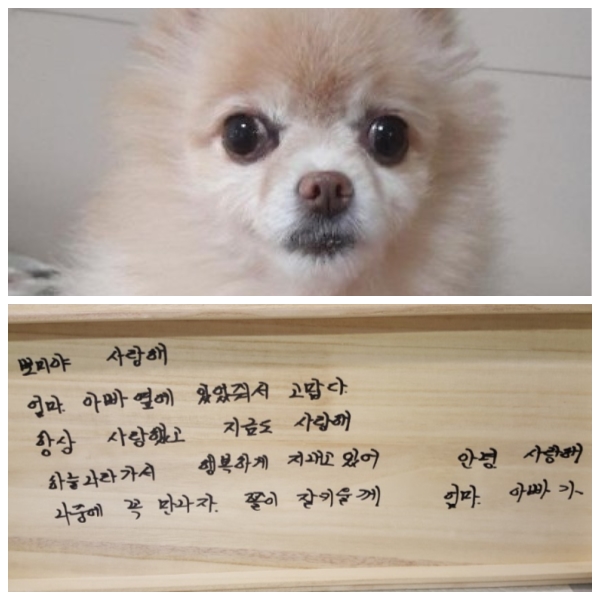 뽀미야 사랑해
엄마. 아빠 옆에 있었줘서 고맙다.
항상 사랑했고 지금도 사랑해
하늘나라가서 행복하게 지내고 있어
나중에 꼭 만나자. 뽈이 잘키울께
안녕 사랑해
엄마. 아빠가